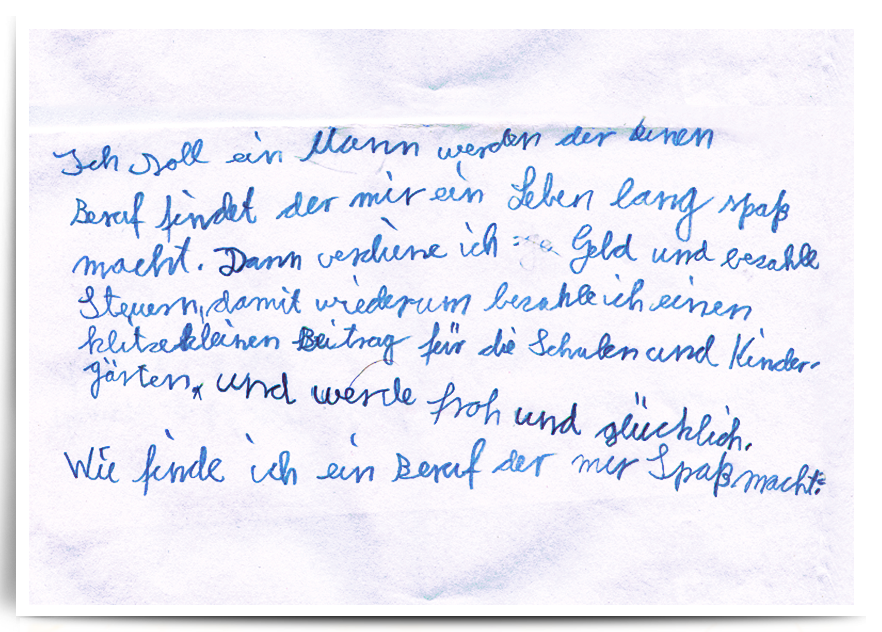 Ich soll ein Mann werden der einen
Beruf findet der mir ein Leben lang spaß
macht. Dann verdiene ich Geld und bezahle
Steuern, damit wiederum bezahle ich einen
klitzekleinen Beitrag für die Schulen und Kinder-
gärten, und werde froh und glücklich.
Wie finde ich ein Beruf der mir Spaß macht?